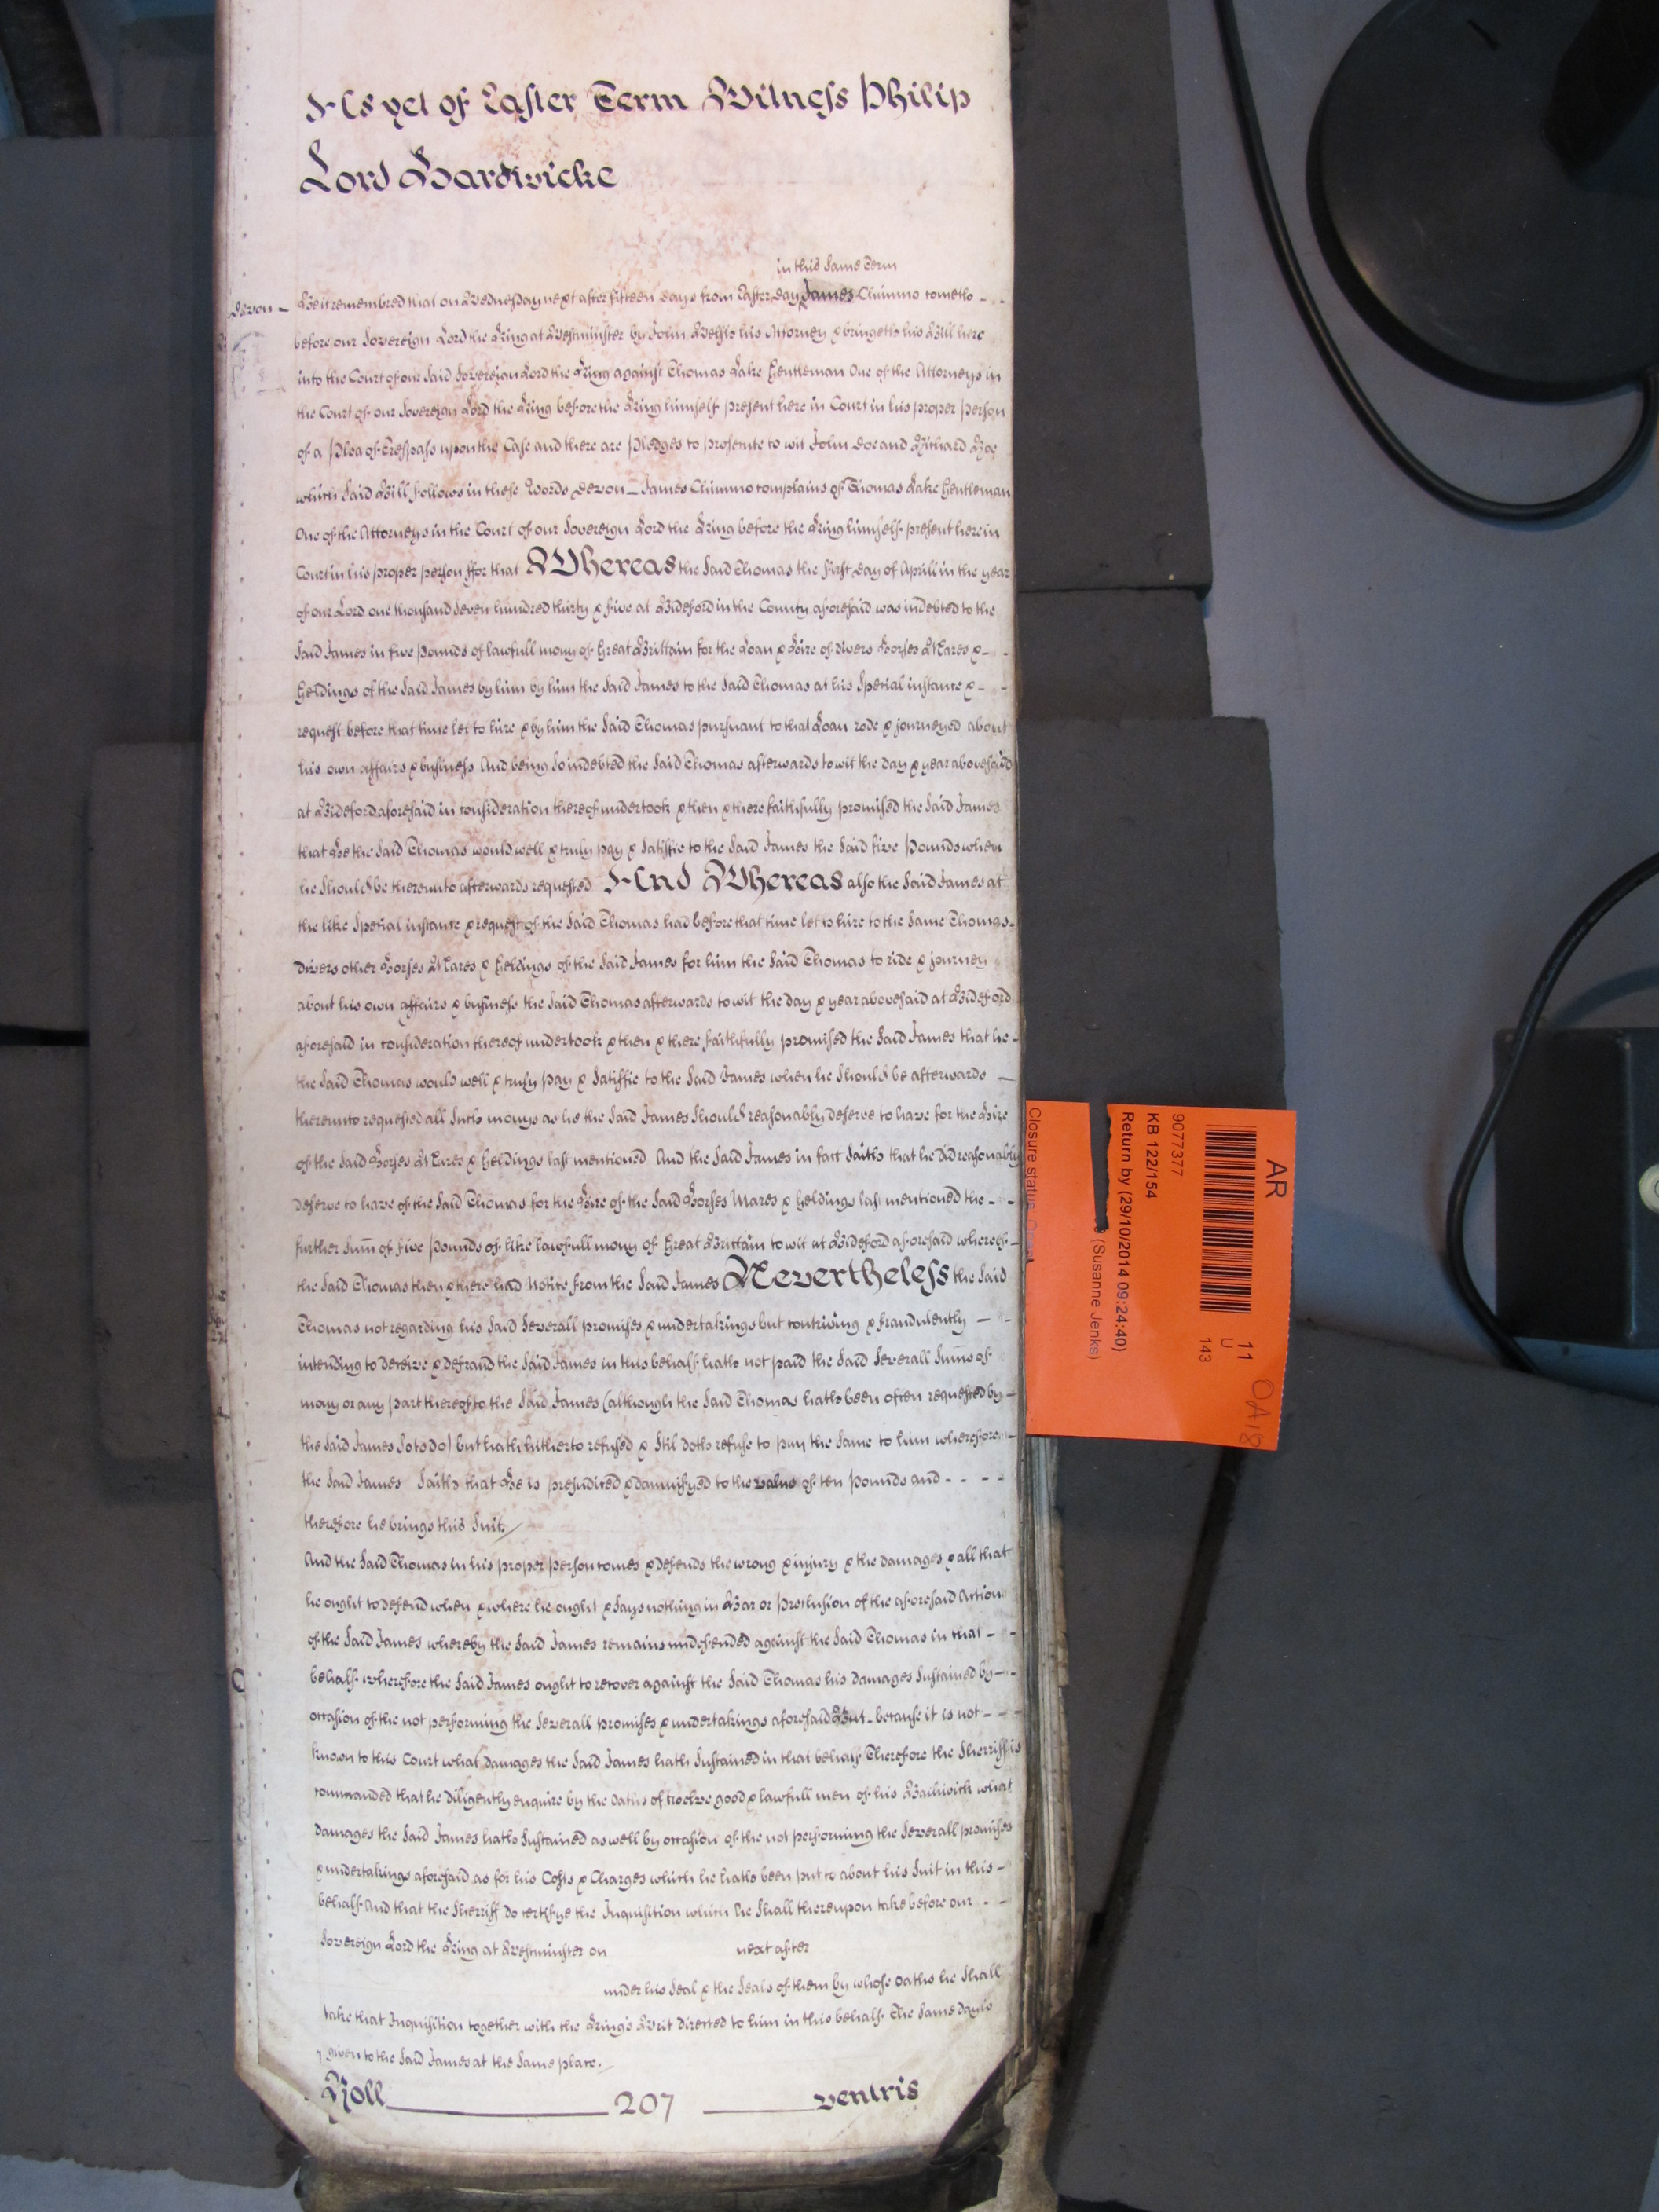 As yet of Easter Term Witness Philip
Lord Hardwicke
in this Same Term
Devon - Be it remembred that on Wednesday next after fifteen days from Easter day James Chimmo cometh - -
before our Sovereign Lord the King at Westminster by John Welsh his Attorney & bringeth his Bill here
into the Court of our Said Sovereign Lord the King against Thomas Lake Gentleman One of the Attorneys in
the Court of our Sovereign Lord the King before the King himself present here in Court in his proper person
of a Plea of Trespass upon the Case and there are Pledges to prosecute to wit John Doe and Richard Roe
which Said Bill follows in these Words Devon - James Chimmo complains of Thomas Lake Gentleman
One of the Attorneys in the Court of our Sovereign Lord the King before the King himself present here in
Court in his proper person ffor that Whereas the Said Thomas the first day of April in the year
of our Lord one thousand Seven hundred thirty & five at Bideford in the County aforesaid was indebted to the
Said James in five Pounds of lawfull mony of Great Brittain for the Loan & Hire of divers Horses Mares & - -
Geldings of the Said James by him by him the Said James to the Said Thomas at his Special instance & - -
request before that time let to hire & by him the Said Thomas pursuant to that Loan rode & journeyed about
his own affairs & business And being So indebted the Said Thomas afterwards to wit the day & year abovesaid
at Bideford aforesaid in consideration thereof undertook & then & there faithfully promised the Said James
that He the Said Thomas would well & truly pay & Satisfie to the Said James the Said five Pounds when
he Should be thereunto afterwards requested And Whereas also the Said James at
the like Special instance & request of the Said Thomas had before that time let to hire to the Same Thomas -
divers other Horses Mares & Geldings of the Said James for him the Said Thomas to ride & journey
about his own affairs & business the Said Thomas afterwards to wit the day & year abovesaid at Bideford
aforesaid in consideration thereof undertook & then & there faithfully promised the Said James that he -
the Said Thomas would well & truly pay & Satisfie to the Said James when he Should be afterwards -
thereunto requested all Such monys as he the Said James Should reasonably deserve to have for the Hire
of the Said Horses Mares & Geldings last mentioned And the Said James in fact Saith that he did reasonably
deserve to have of the Said Thomas for the Hire of the Said Horses Mares & Geldings last mentioned the - -
further Sum̄ of five Pounds of like lawfull mony of Great Brittain to wit at Bideford aforesaid whereof -
the Said Thomas then & there had Notice from the Said James Nevertheless the Said
Thomas not regarding his Said Severall promises & undertakings but contriving & fraudulently - -
intending to deceive & defraud the Said James in this behalf hath not paid the Said Severall Sum̄s of
mony or any part thereof to the Said James (although the Said Thomas hath been often requested by -
the Said James So to do) but hath hitherto refused & Stil doth refuse to pay the Same to him wherefore -
the Said James Saith that He is prejudiced & damnifyed to the value of ten Pounds and - - - -
therefore he brings this Suit
And the Said Thomas in his proper person comes & defends the wrong & injury & the damages & all that
he ought to defend when & where he ought & Says nothing in Bar or Preclusion of the aforesaid Action
of the Said James whereby the Said James remains undefended against the Said Thomas in that - -
behalf wherefore the Said James ought to recover against the Said Thomas his damages Sustained by - -
occasion of the not performing the Severall promises & undertakings aforesaid But - because it is not - - -
known to this Court what damages the Said James hath Sustained in that behalf Therefore the Sherriff is
commanded that he diligently enquire by the Oaths of twelve good & lawfull men of his Bailiwick what
damages the Said James hath Sustained as well by occasion of the not performing the Severall promises
& undertakings aforesaid as for his Costs & Charges which he hath been put to about his Suit in this -
behalf And that the Sherriff do certifye the Inquisition which he Shall thereupon take before our - -
Sovereign Lord the King at Westminster on next after
under his Seal & the Seals of them by whose Oaths he Shall
take that Inquisition together with the King's Writ directed to him in this behalf The Same day is
given to the Said James at the Same place.
Roll 207 Ventris
AR
11
U
143
9077377
KB 122/154
Return by (29/10/2014 09:24:40)
(Susanne Jenks)
Closure status
OA18